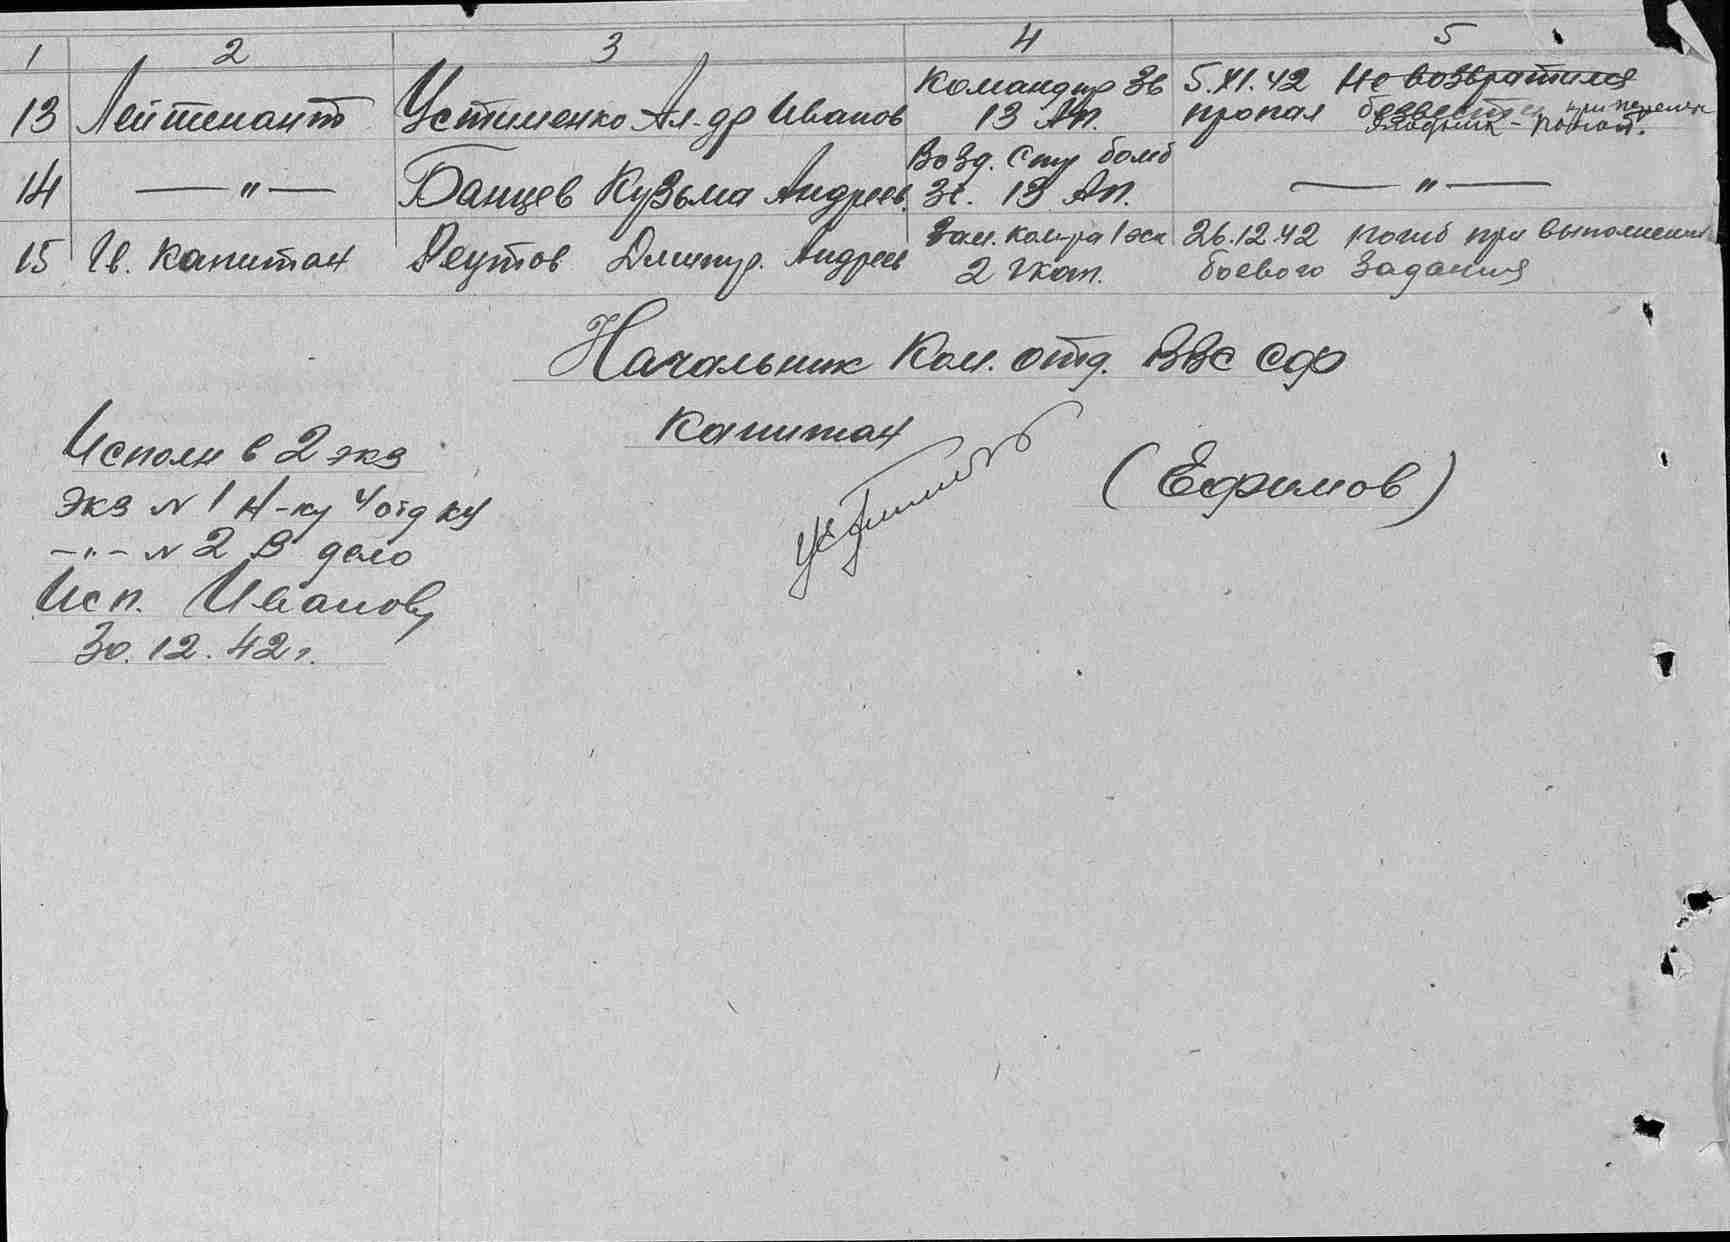 1 2 3 4 5
13 Лейтенант Устименко Ал-др Иванов Командир Зв 13 Ап. 5.XI.42 Не возвратился
пропал безвести при перелете
14 —"— Банцев Кузьма Андреев. Возд. Стр бомб
Зс. 13 Ап. —"—
15 Гв. Капитан Реутов Дмитр. Андреев Зам. ком-ра 1 эск
2 гкап. 26.12.42 погиб при выполнении
боевого задания
Начальник Ком. отд. ВВС СФ
Капитан
(Ефимов)
Исполн в 2 экз
Экз N 1 Н-ку 4 отд КУ
-"- N 2 В дело
Исп. Иванов
30.12.42г.